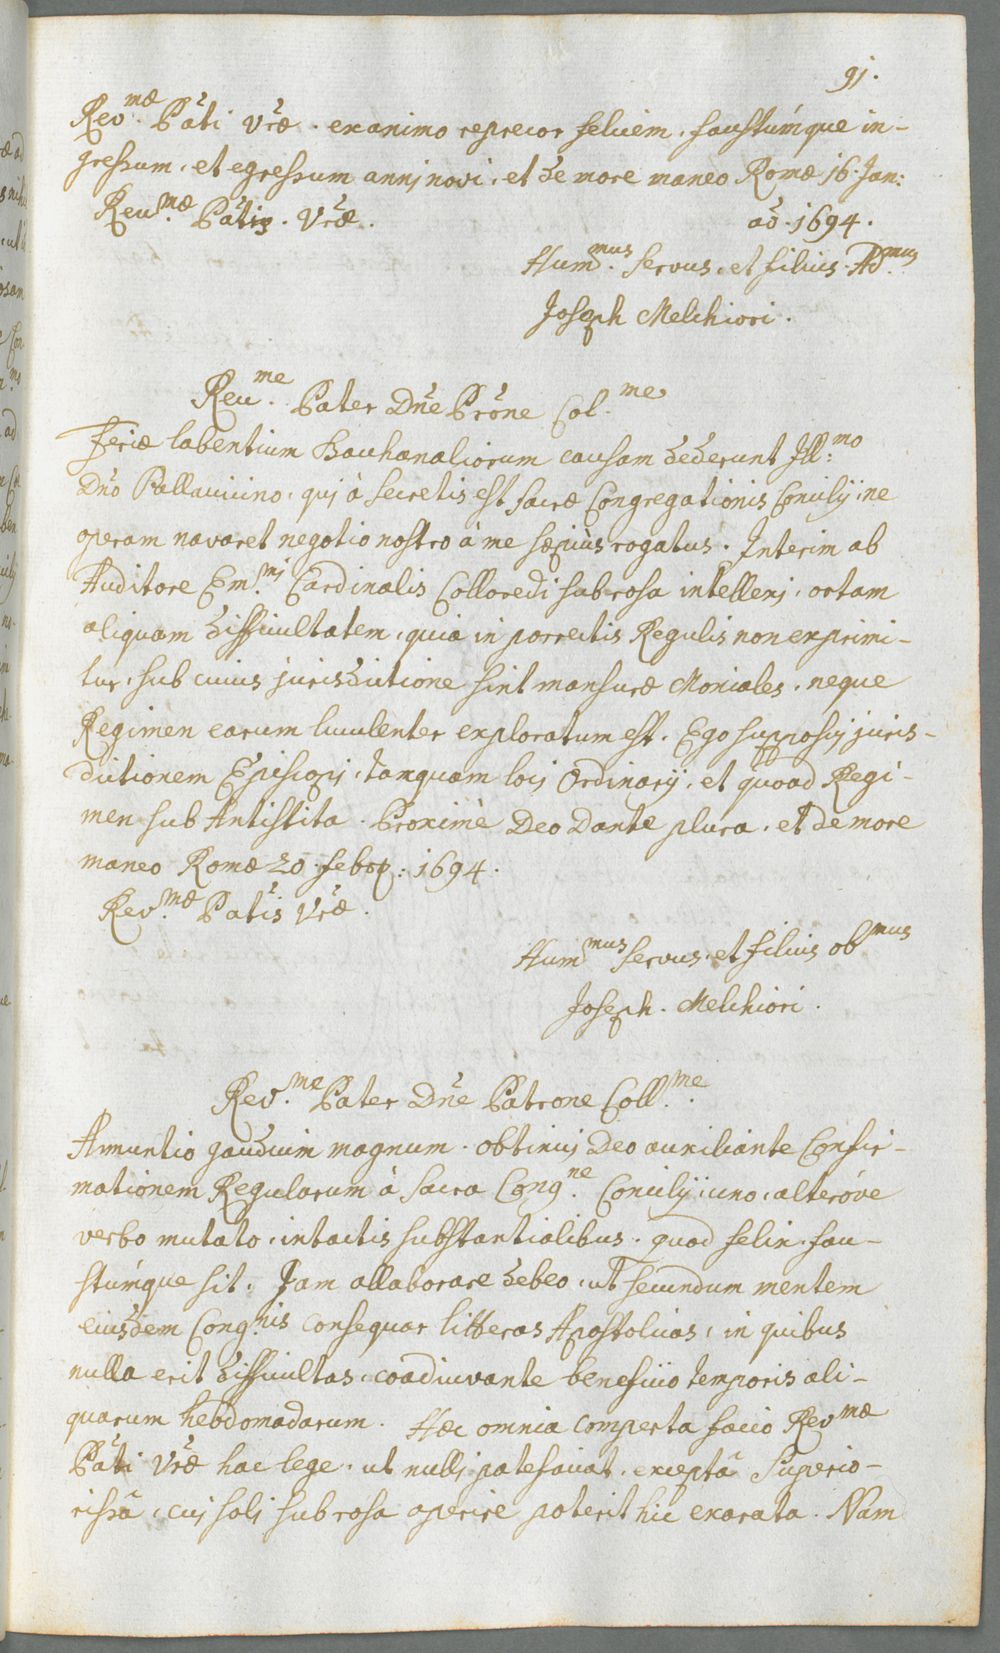 91.
Rev.mæ Pãti Vr̃æ. exanimo reprecor felicem, faustúmque in-
gressum, et egressum annj novi, et de more maneo Romæ 16. Jan:
Reu.mæ Pãtis. Vr̃æ. aõ. 1694.
Hum.mus servus, et filius. Ad.mus
Joseph Melchiori.
Reu.me Pater Dñe Prõne Col.me
Feriæ labentium Bachanaliorum causam dederunt Ill:mo
Dño Pallavicino, quj à secretis est sacræ Congregationis Concilij, ne
operam navaret negotio nostro à me sæpiùs rogatus. Interim ab
Auditore Em.mj Cardinalis Colloredi sub rosa intellexj, ortam
aliquam difficultatem, quia in porrectis Regulis non exprimi-
tur, sub cuius jurisdictione sint mansuræ Moniales, neque
Regimen earum luculenter exploratum est. Ego supposuj juris-
dictionem Episcopj, tanquam locj Ordinarij, et quoad Regi-
men sub Antistita. Proximè Deo Dante plura, et de more
maneo Romæ 20. febr: 1694.
Rev.mæ Pãtis Vr̃æ.
Hum.mus servus, et filius ob.mus
Joseph. Melchiori.
Rev.me Pater Dñe Patrone Coll.me
Annuntio gaudium magnum. obtinuj Deo auxiliante Confir-
mationem Regularum à Sacra Cong.ne Concilij, uno, alteróve
verbo mutato, intactis substantialibus. quod felix, fau-
stúmque sit. Jam allaborare debeo, ut secundum mentem
eiusdem Cong.nis consequar litteras Apostolicas, in quibus
nulla erit difficultas, coadiuvante beneficio temporis ali-
quarum hebdomadarum. Hæc omnia comperta facio Rev.mæ
Pãti Vr̃æ hac lege, ut nullj patefaciat, exceptâ Superio-
rissâ, cuj soli sub rosa aperire poterit hic exarata. Nam